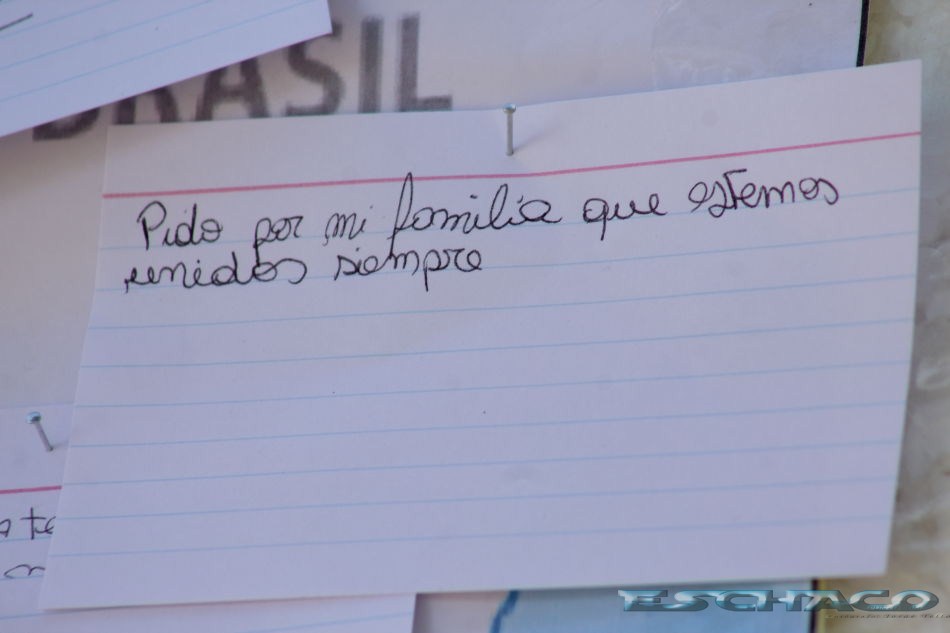 BRASIL
Pido por mi familia que estemos
unidos siempre
ESCHACO